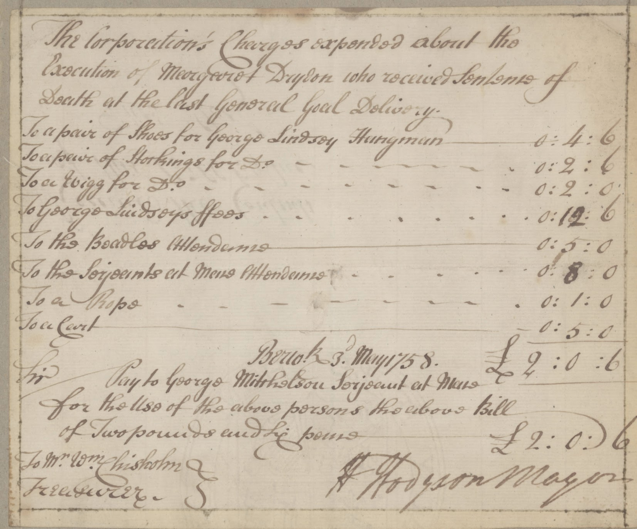 The Corporation's Charges expended about the
Execution of Margaret Dryden who received Sentence of
Death at the last General Goal Delivery.
To a pair of Shoes for George Lindsey Hangman 0: 4: 6
To a pair of Stockings for Do 0: 2: 6
To a Wigg for Do 0: 2: 0
To George Lindseys ffees 0: 12: 6
To the Beadles Attendance 0: 5: 0
To the Serjeants at Mace Attendance 0: 8: 0
To a Rope 0: 1: 0
To a Cart 0: 5: 0
Berwk 3d May 1758. £ 2: 0: 6
Sir Pay to George Mitchelson Serjeant at Mace
for the Use of the above persons the above Bill
of Two pounds and Six pence £ 2: 0: 6
To Mr Wm Chisholm
Treasurer.
H Hodgson Mayor